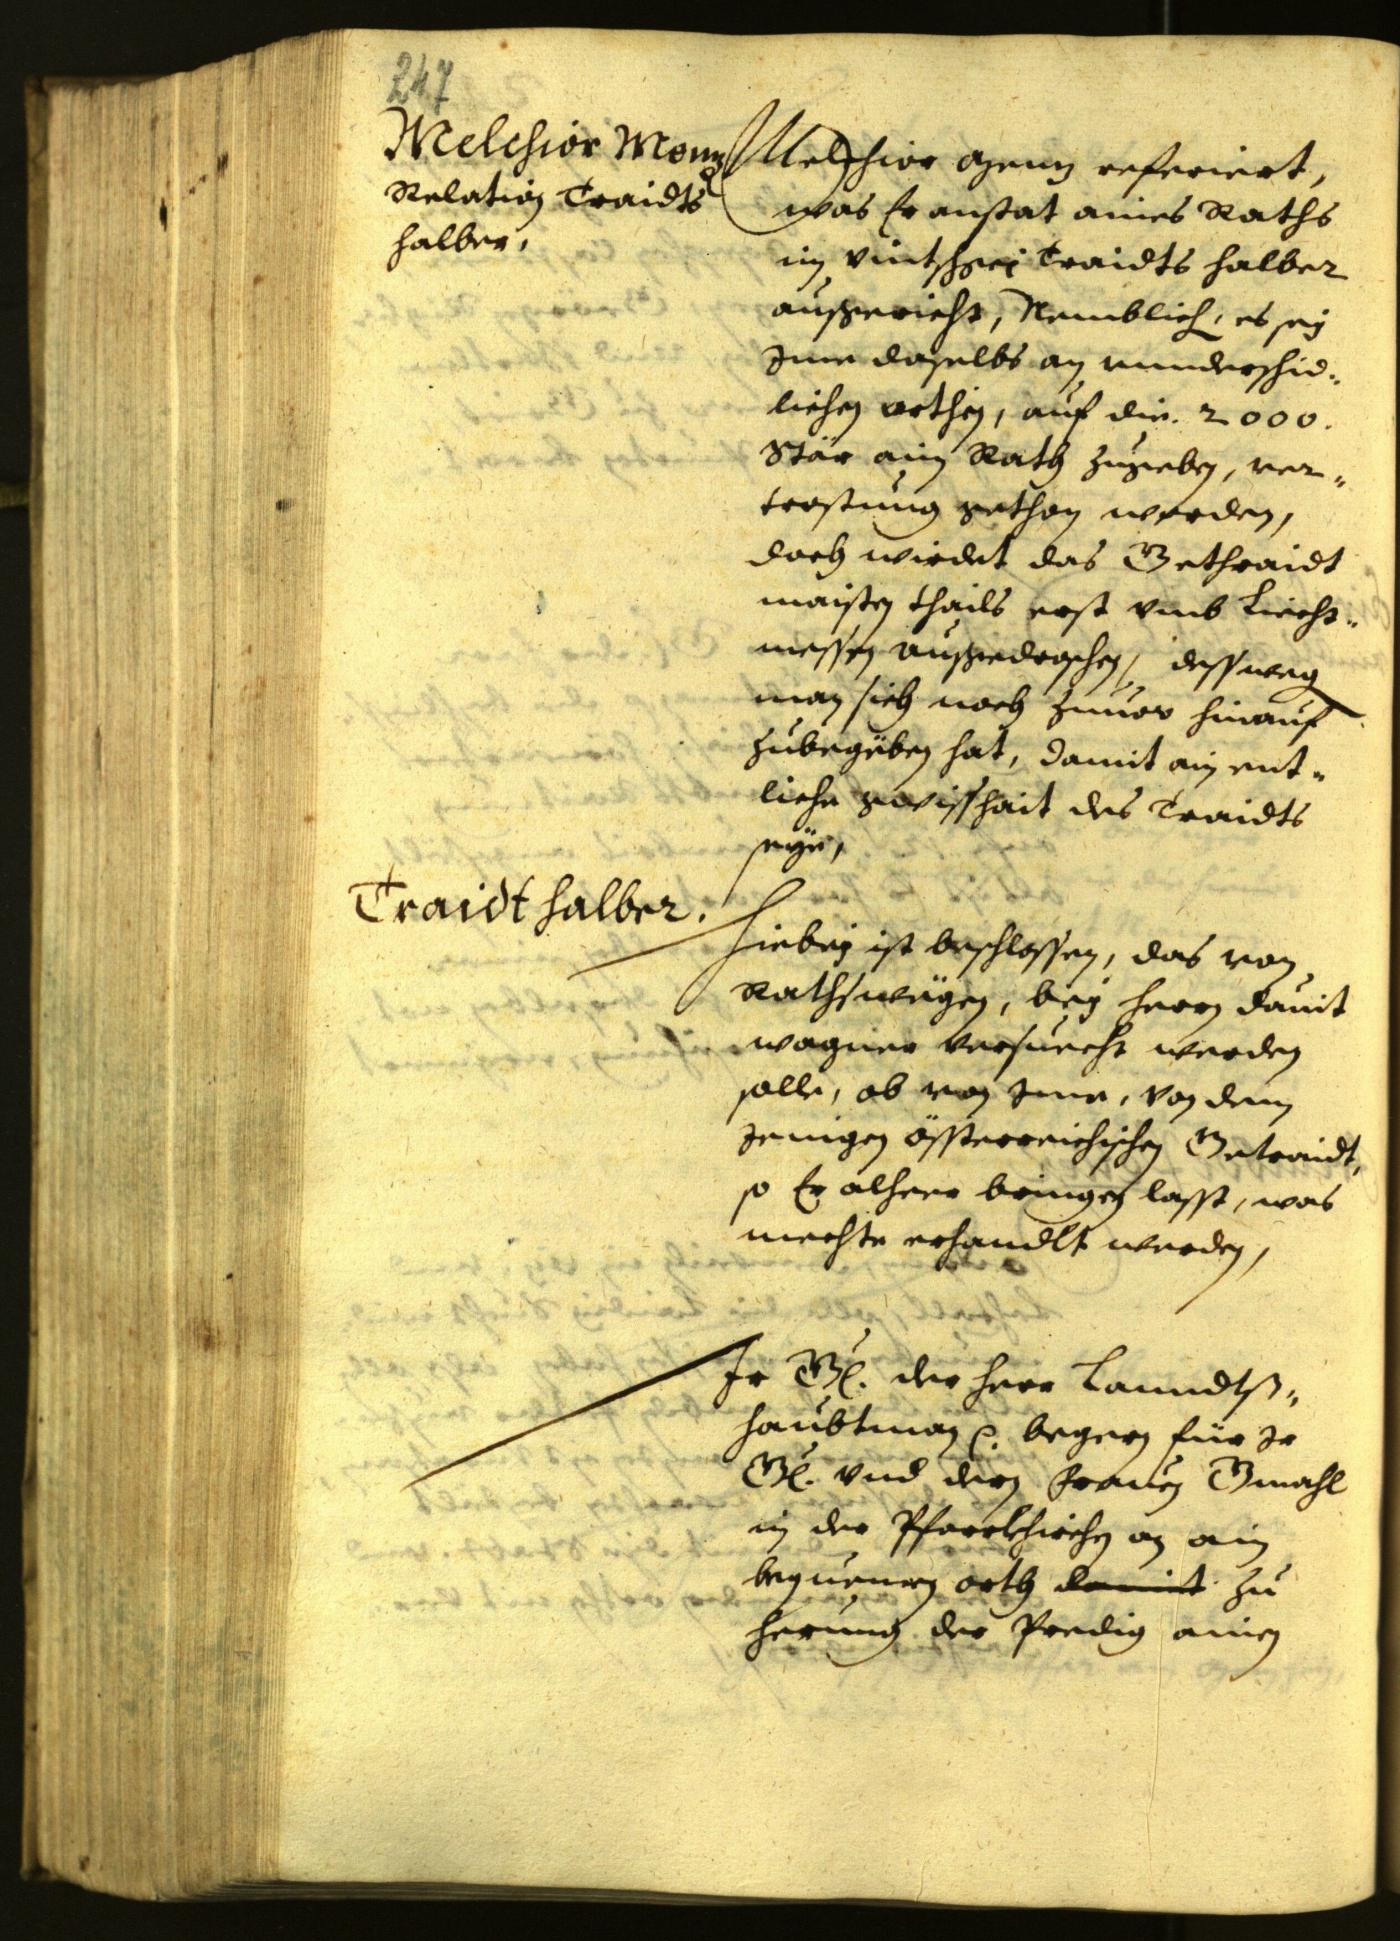 247
Melchior Menz
Relation Traidts
halber,
Melchior Menz referiert,
was Er anstat aines Raths
im Vintschgei Traidts halber
aussgericht, Nemblich, es sey
Ime daselbs an vnnderschid-
lichen orthen, auf die 2000.
Stär aim Rath zugeben, ver-
trostung gethon worden,
doch wirdet das Gethraidt
maisten thails erst vmb Liecht-
messen aussgedroschen, dessweg
man sich noch zuuor hinauf
zubegëben hat, damit ain ent-
liche gwisshait des Traidts
seye,
Traidt halber.
Hiebey ist beschlossen, das von
Rathswëgen, bey herrn Dauit
Wagner versuecht werden
solle, ob von Ime, von dem
Jenigen össterreichischen Getraidt,
so Er alheer bringen lasst, was
mechte erhandlt werden,
Ir Gl. der herr Lanndtß-
haubtman p. begern für Ir
Gl. vnd dern Frauen Gmahl
in der Pfarrkhirchen an ain
bequemen orth damit zu
herung der Predig ainen